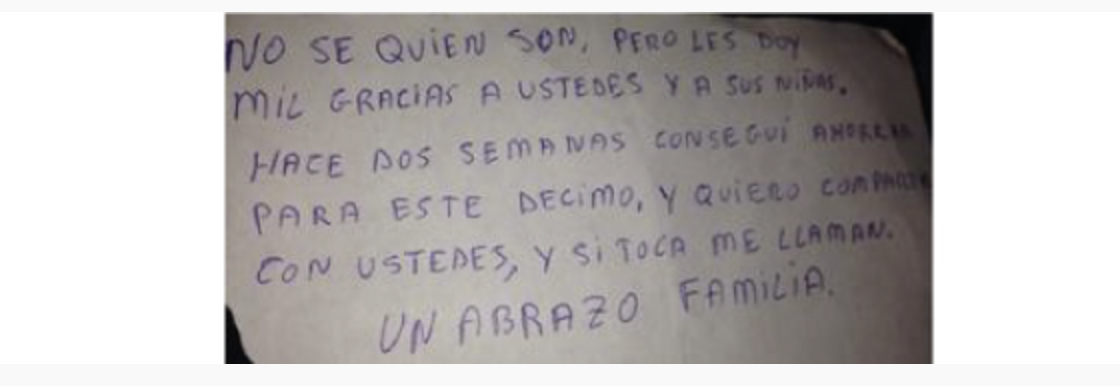 NO SE QUIEN SON, PERO LES DOY
MIL GRACIAS A USTEDES Y A SUS NIÑAS.
HACE DOS SEMANAS CONSEGUÍ AHORRAR
PARA ESTE DECIMO, Y QUIERO COMPARTIR
CON USTEDES, Y SI TOCA ME LLAMAN.
UN ABRAZO FAMILIA.